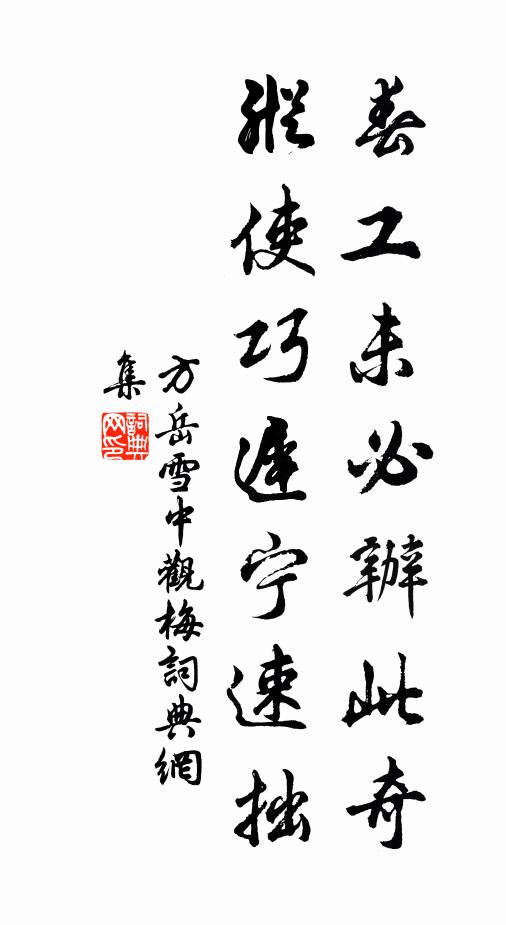 春工未必辦此奇
縱使巧遲宁速拙
方岳雪中觀梅詞典網
集
詞典網印